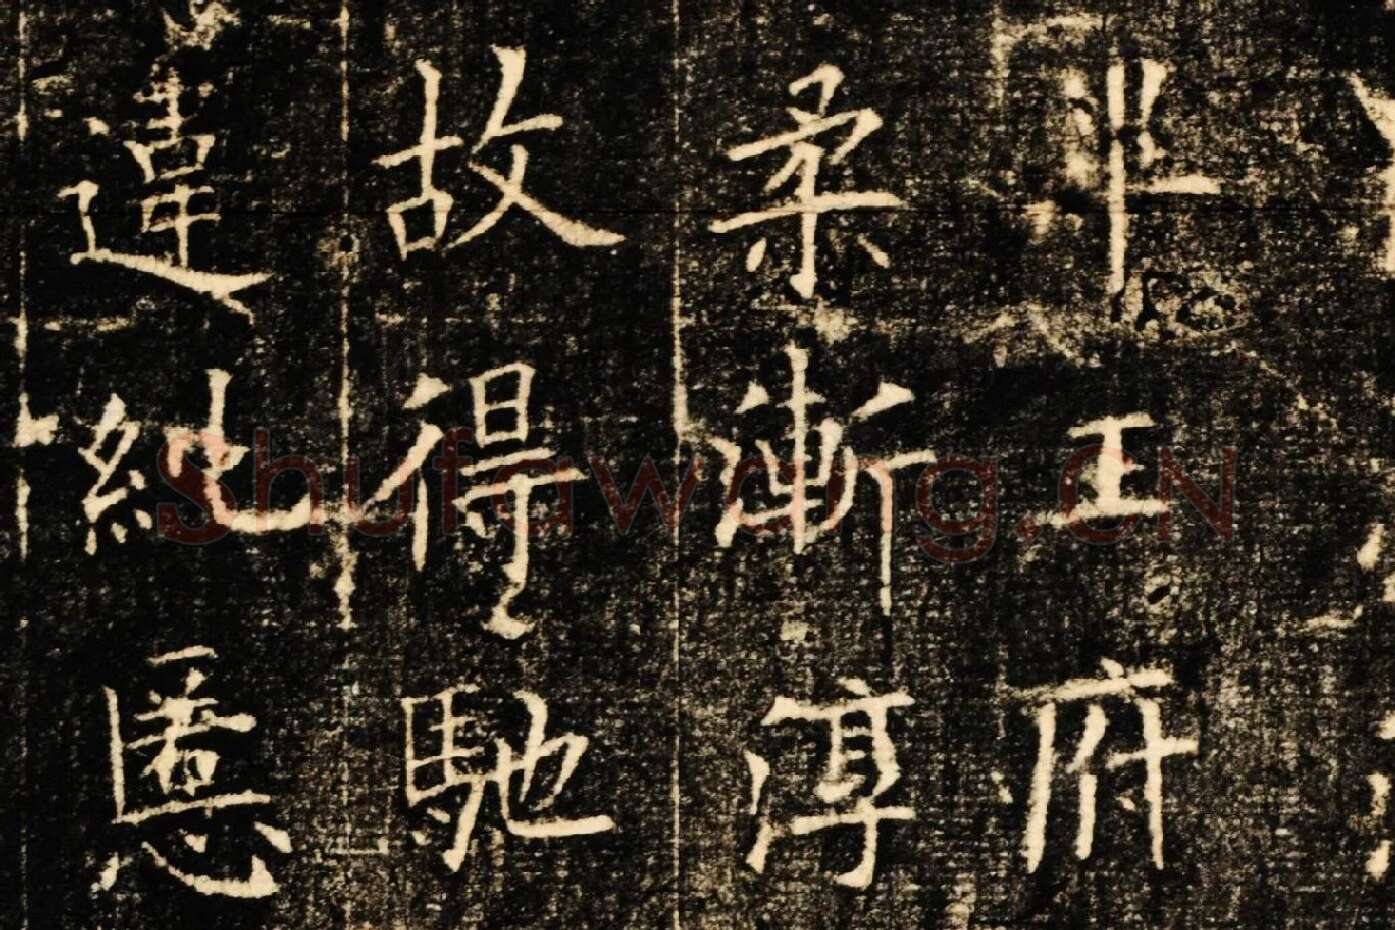 王府
柔漸淳
故得馳
違慝
Shufawang.CN